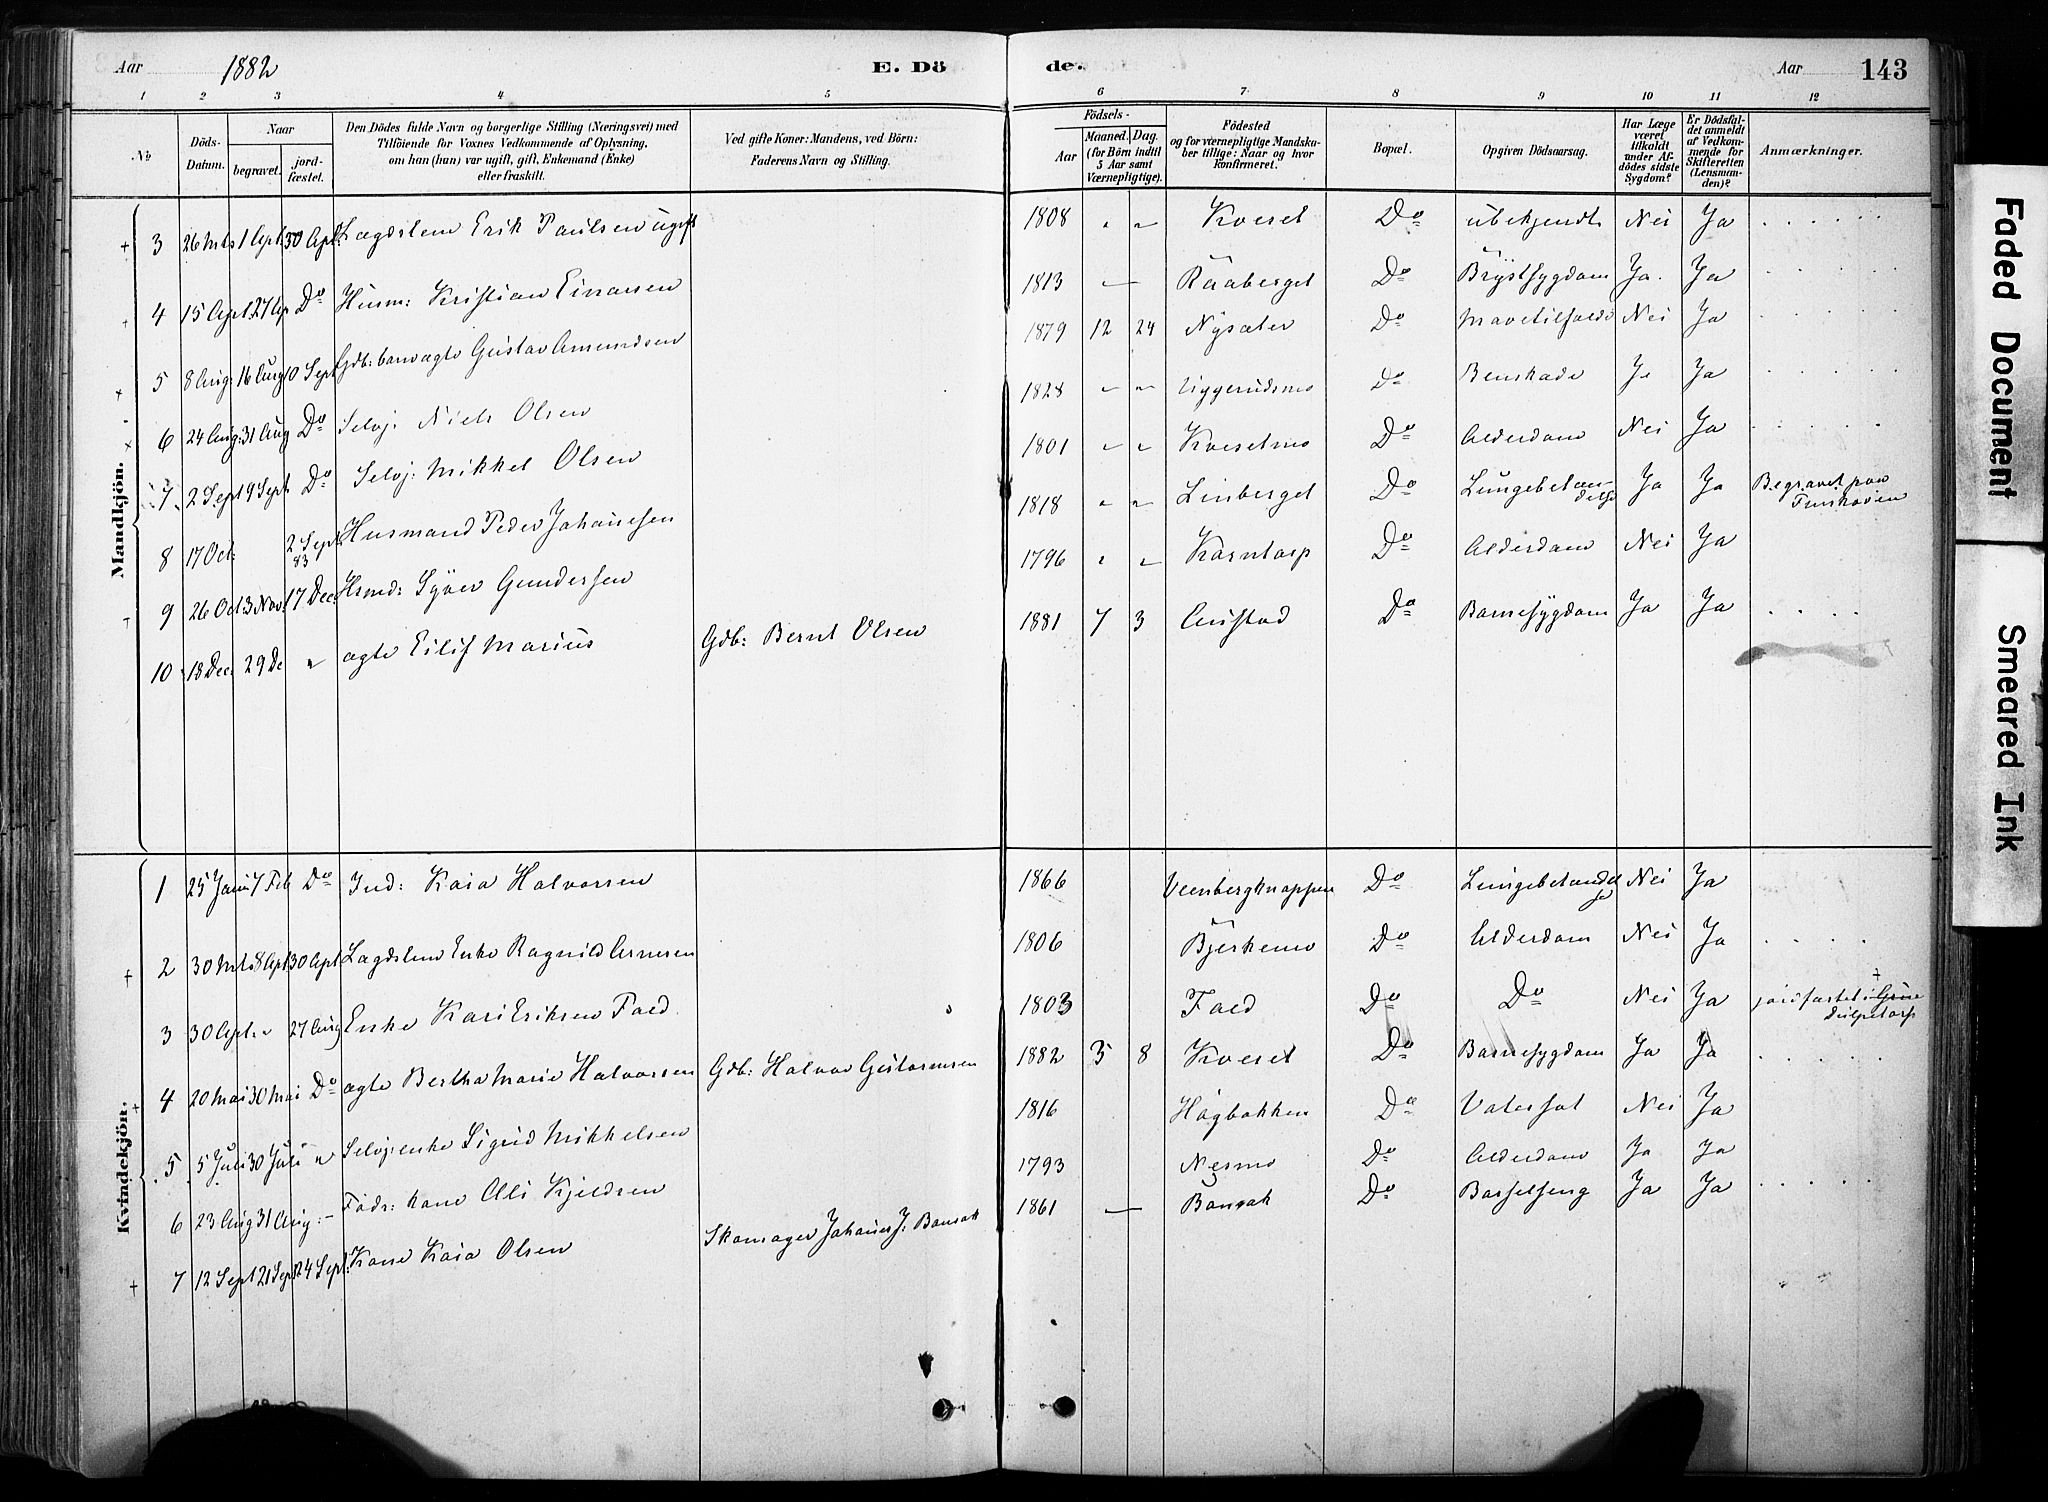 Aar 1882 E. Dö de. Aar 143
1 2 3 4 5 6 7 8 9 10 11 12
No
Döds-Datum.
Naar
begravet.
jord-fæstet.
Den Dödes fulde Navn og borgerlige Stilling (Næringsvei) med
Tilföiende for Voxnes Vedkommende af Oplysning,
om han (hun) var ugift, gift, Enkemand (Enke)
eller fraskilt.
Ved gifte Koner: Mandens, ved Börn:
Faderens Navn og Stilling.
Födsels-
Aar
Maaned. Dag.
(for Börn indtil
5 Aar samt
Værnepligtige).
Födested
og for værnepligtige Mandska-
ber tillige: Naar og hvor
konfirmeret.
Bopæl.
Opgiven Dödsaarsag.
Har Læge
været
tilkaldt
under Af-
dödes sidste
Sygdom?
Er Dödsfal-
det anmeldt
af Vedkom-
mende for
Skifteretten
(Lensman-
den)?
Anmærkninger.
Mandkjön.
3 26 Mts 1 Apt 30 Apt Lægdslem Erik Paulsen ugift 1808 " " Kveset Do ubekjendt Nei Ja
4 15 Apt 27 Ap Do Husm: Kristian Einarsen 1813 — Raaberget Do Brystsygdom Ja Ja
5 8 Aug: 16 Aug 10 Sept Gdb: barn ægte Gustav Amundsen 1879 12 24 Nysæter Do Mavetilfælde Nei Ja
6 24 Aug: 31 Aug Do Selvj: Niels Olsen 1828 " " Uggerudsmo Do Benskade Ja Ja
7 2 Sept 9 Sept Do Selvj: Mikkel Olsen 1801 " " Kvesetmo Do Alderdom Nei Ja
8 17 Oct: 2 Sept 83 Husmand Peder Johannesen 1818 " " Linberget Do Lungebetændelse Ja Ja Begravet paa Finskoven
9 26 Oct 3 Nov: 17 Dec: Hsmd: Syver Gundersen 1796 " " Karntorp Do Alderdom Nei Ja
10 18 Dec: 29 De " ægte Eilif Marius Gdb: Bernt Olsen 1881 7 3 Austad Do Barnesygdom Ja Ja
Kvindekjön.
1 25 Janu 7 Feb Do Ind: Kaia Halvorsen 1866 Veenbergknappen Do Lungebetændelse Nei Ja
2 30 Mts 8 Apt 30 Apt Lægdslem Enke Ragnild Arnesen 1806 Bjerkemo Do Alderdom Nei Ja
3 30 Apt. " 27 Aug Enke Kari Eriksen Fald 1803 Fald Do Do Nei Ja jordfæstet i Grue
4 20 Mai 30 Mai Do ægte Bertha Marie Halvorsen Gdb: Halvor Gustavsen 1882 3 8 Kveset Do Barnesygdom Ja Ja
5 5 Juli 30 Juli " Selvejenke Sigrid Mikkelsen 1816 Högbakken Do Vatersot Nei Ja
6 23 Aug 31 Aug: – Födr: kone Oli Kjeldsen 1793 Nesmo Do Alderdom Ja Ja
7 12 Sept 21 Sept 24 Sept: Kone Kaia Olsen Skomager Johanes J: Banrak 1861 — Banrak Do Barselseng Ja Ja
Faded Document
Smeared Ink